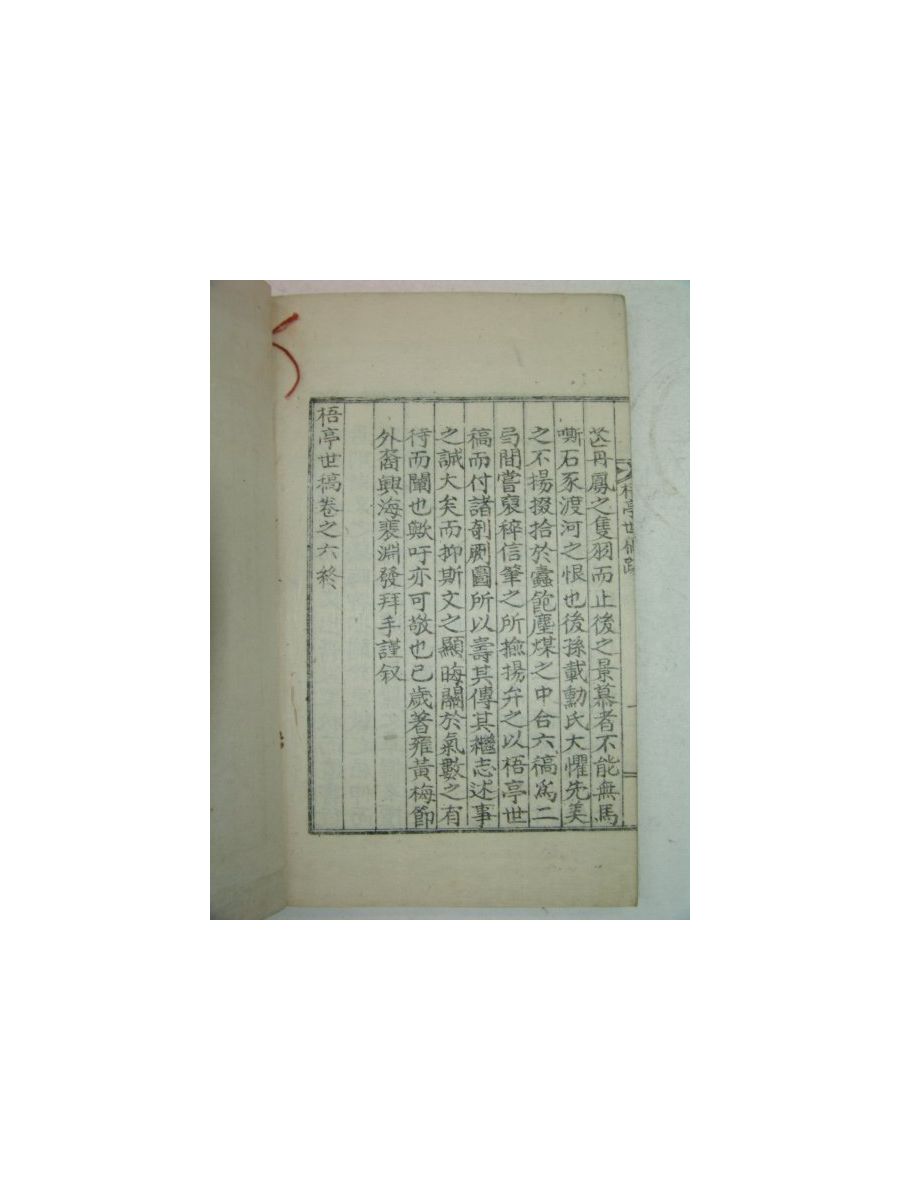 苾丹鳳之隻羽而止後之景慕者不能無馬
嘶石豕渡河之恨也後孫載勳氏大懼先美
之不揚掇拾於蠹飽塵煤之中合六稿爲二
弓間嘗裒稡信筆之所揄揚弁之以梧亭世
稿而付諸剞劂圖所以壽其傳其繼志述事
之誠大矣而抑斯文之顯晦關於氣數之有
待而闡也歟吁亦可敬也已歲著雍黃梅節
外裔興海裴淵發拜手謹叙
梧亭世稿卷之六終